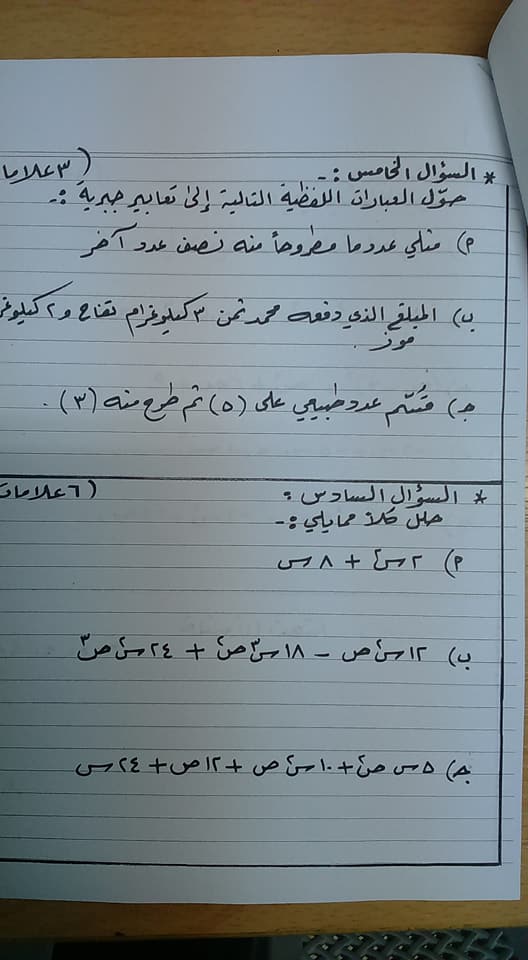 * السؤال الخامس :- (٣ علاما
حوّل العبارات اللفظية التالية إلى تعابير جبرية :-
٢) مثلي عدد ما مطروحاً منه نصف عدد آخر
ب) المبلغ الذي دفعه محمد ثمن ٣ كيلوغرام تفاح و ٢ كيلوغر
موز .
جـ) قُسّم عدد طبيعي على (٥) ثم طرح منه (٣) .
* السؤال السادس : (٦ علامات
حلل كلاً مما يلي :-
٢) ٢س٢ + ٨س
ب) ١٢س٢ص - ١٨س٣ص٢ + ٢٤س٢ص٣
جـ) ٥س ص٢ + ١٠س٢ص + ١٢ص + ٢٤س